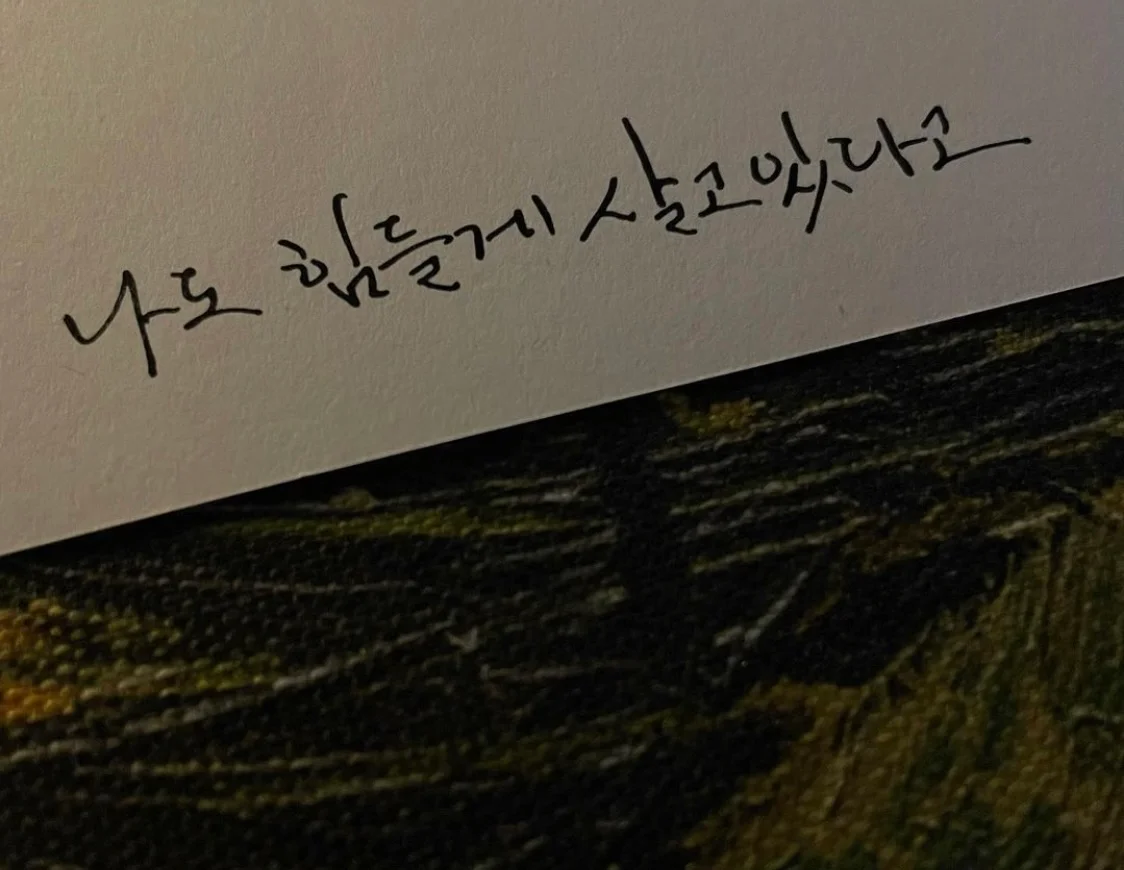 나도 힘들게 살고 있다고